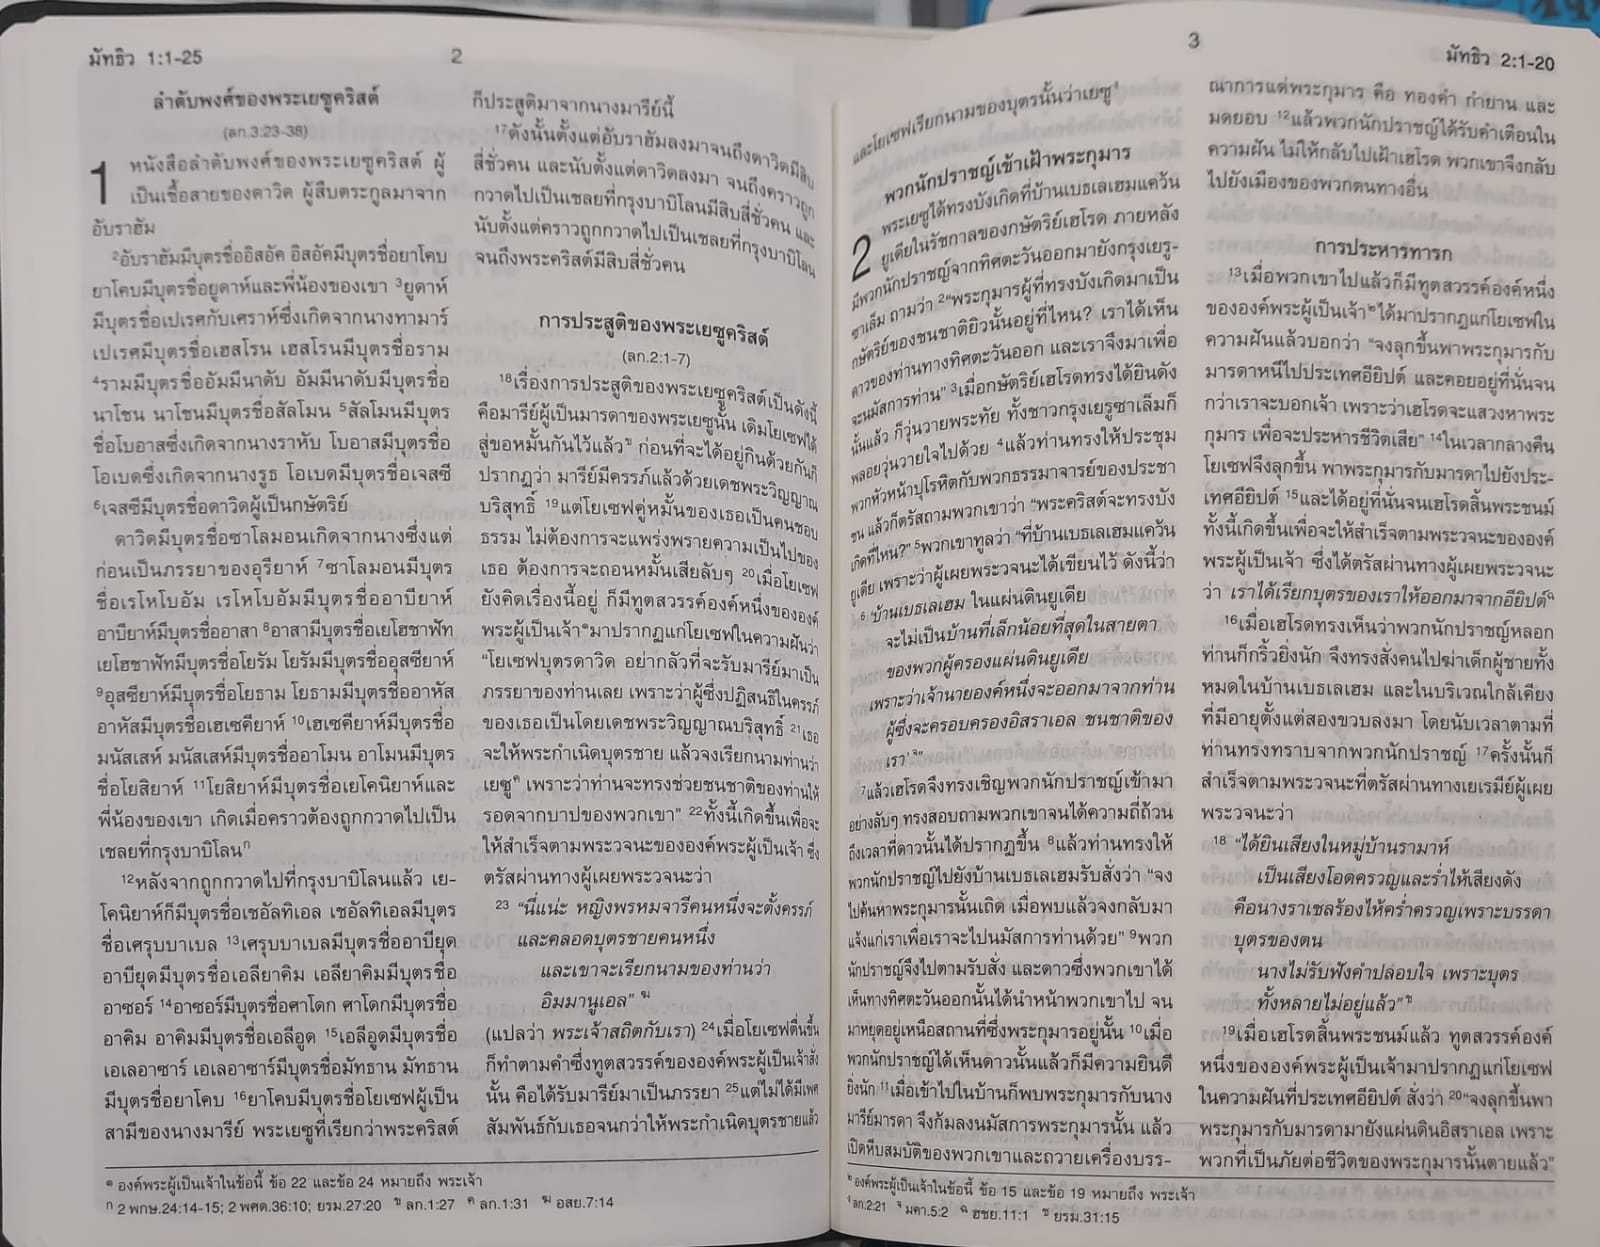 มัทธิว 1:1-25
2
ลำดับพงศ์ของพระเยซูคริสต์
(ลก.3:23-38)
1 หนังสือลำดับพงศ์ของพระเยซูคริสต์ ผู้
เป็นเชื้อสายของดาวิด ผู้สืบตระกูลมาจาก
อับราฮัม
2อับราฮัมมีบุตรชื่ออิสอัค อิสอัคมีบุตรชื่อยาโคบ
ยาโคบมีบุตรชื่อยูดาห์และพี่น้องของเขา 3ยูดาห์
มีบุตรชื่อเปเรศกับเศราห์ซึ่งเกิดจากนางทามาร์
เปเรศมีบุตรชื่อเฮสโรน เฮสโรนมีบุตรชื่อราม
4รามมีบุตรชื่ออัมมีนาดับ อัมมีนาดับมีบุตรชื่อ
นาโชน นาโชนมีบุตรชื่อสัลโมน 5สัลโมนมีบุตร
ชื่อโบอาสซึ่งเกิดจากนางราหับ โบอาสมีบุตรชื่อ
โอเบดซึ่งเกิดจากนางรูธ โอเบดมีบุตรชื่อเจสซี
6เจสซีมีบุตรชื่อดาวิดผู้เป็นกษัตริย์
ดาวิดมีบุตรชื่อซาโลมอนเกิดจากนางซึ่งแต่
ก่อนเป็นภรรยาของอุรียาห์ 7ซาโลมอนมีบุตร
ชื่อเรโหโบอัม เรโหโบอัมมีบุตรชื่ออาบียาห์
อาบียาห์มีบุตรชื่ออาสา 8อาสามีบุตรชื่อเยโฮชาฟัท
เยโฮชาฟัทมีบุตรชื่อโยรัม โยรัมมีบุตรชื่ออุสซียาห์
9อุสซียาห์มีบุตรชื่อโยธาม โยธามมีบุตรชื่ออาหัส
อาหัสมีบุตรชื่อเฮเซคียาห์ 10เฮเซคียาห์มีบุตรชื่อ
มนัสเสห์ มนัสเสห์มีบุตรชื่ออาโมน อาโมนมีบุตร
ชื่อโยสิยาห์ 11โยสิยาห์มีบุตรชื่อเยโคนิยาห์และ
พี่น้องของเขา เกิดเมื่อคราวต้องถูกกวาดไปเป็น
เชลยที่กรุงบาบิโลนก
12หลังจากถูกกวาดไปที่กรุงบาบิโลนแล้ว เย-
โคนิยาห์ก็มีบุตรชื่อเชอัลทิเอล เชอัลทิเอลมีบุตร
ชื่อเศรุบบาเบล 13เศรุบบาเบลมีบุตรชื่ออาบียุด
อาบียุดมีบุตรชื่อเอลียาคิม เอลียาคิมมีบุตรชื่อ
อาซอร์ 14อาซอร์มีบุตรชื่อศาโดก ศาโดกมีบุตรชื่อ
อาคิม อาคิมมีบุตรชื่อเอลีอูด 15เอลีอูดมีบุตรชื่อ
เอเลอาซาร์ เอเลอาซาร์มีบุตรชื่อมัทธาน มัทธาน
มีบุตรชื่อยาโคบ 16ยาโคบมีบุตรชื่อโยเซฟผู้เป็น
สามีของนางมารีย์ พระเยซูที่เรียกว่าพระคริสต์
ก็ประสูติมาจากนางมารีย์นี้
17ดังนั้นตั้งแต่อับราฮัมลงมาจนถึงดาวิดมีสิบ
สี่ชั่วคน และนับตั้งแต่ดาวิดลงมา จนถึงคราวถูก
กวาดไปเป็นเชลยที่กรุงบาบิโลนมีสิบสี่ชั่วคน และ
นับตั้งแต่คราวถูกกวาดไปเป็นเชลยที่กรุงบาบิโลน
จนถึงพระคริสต์มีสิบสี่ชั่วคน
การประสูติของพระเยซูคริสต์
(ลก.2:1-7)
18เรื่องการประสูติของพระเยซูคริสต์เป็นดังนี้
คือมารีย์ผู้เป็นมารดาของพระเยซูนั้น เดิมโยเซฟได้
สู่ขอหมั้นกันไว้แล้วข ก่อนที่จะได้อยู่กินด้วยกันก็
ปรากฏว่า มารีย์มีครรภ์แล้วด้วยเดชพระวิญญาณ
บริสุทธิ์ 19แต่โยเซฟคู่หมั้นของเธอเป็นคนชอบ
ธรรม ไม่ต้องการจะแพร่งพรายความเป็นไปของ
เธอ ต้องการจะถอนหมั้นเสียลับๆ 20เมื่อโยเซฟ
ยังคิดเรื่องนี้อยู่ ก็มีทูตสวรรค์องค์หนึ่งขององค์
พระผู้เป็นเจ้า๑มาปรากฏแก่โยเซฟในความฝันว่า
“โยเซฟบุตรดาวิด อย่ากลัวที่จะรับมารีย์มาเป็น
ภรรยาของท่านเลย เพราะว่าผู้ซึ่งปฏิสนธิในครรภ์
ของเธอเป็นโดยเดชพระวิญญาณบริสุทธิ์ 21เธอ
จะให้พระกำเนิดบุตรชาย แล้วจงเรียกนามท่านว่า
เยซูค เพราะว่าท่านจะทรงช่วยชนชาติของท่านให้
รอดจากบาปของพวกเขา” 22ทั้งนี้เกิดขึ้นเพื่อจะ
ให้สำเร็จตามพระวจนะขององค์พระผู้เป็นเจ้า ซึ่ง
ตรัสผ่านทางผู้เผยพระวจนะว่า
23 “นี่แน่ะ หญิงพรหมจารีคนหนึ่งจะตั้งครรภ์
และคลอดบุตรชายคนหนึ่ง
และเขาจะเรียกนามของท่านว่า
อิมมานูเอล” ฆ
(แปลว่า พระเจ้าสถิตกับเรา) 24เมื่อโยเซฟตื่นขึ้น
ก็ทำตามคำซึ่งทูตสวรรค์ขององค์พระผู้เป็นเจ้าสั่ง
นั้น คือได้รับมารีย์มาเป็นภรรยา 25แต่ไม่ได้มีเพศ
สัมพันธ์กับเธอจนกว่าให้พระกำเนิดบุตรชายแล้ว
๑ องค์พระผู้เป็นเจ้าในข้อนี้ ข้อ 22 และข้อ 24 หมายถึง พระเจ้า
ก 2 พกษ.24:14-15; 2 พศด.36:10; ยรม.27:20 ข ลก.1:27 ค ลก.1:31 ฆ อสย.7:14
3
มัทธิว 2:1-20
และโยเซฟเรียกนามของบุตรนั้นว่าเยซูง
พวกนักปราชญ์เข้าเฝ้าพระกุมาร
2 พระเยซูได้ทรงบังเกิดที่บ้านเบธเลเฮมแคว้น
ยูเดียในรัชกาลของกษัตริย์เฮโรด ภายหลัง
มีพวกนักปราชญ์จากทิศตะวันออกมายังกรุงเยรู-
ซาเล็ม ถามว่า 2“พระกุมารผู้ที่ทรงบังเกิดมาเป็น
กษัตริย์ของชนชาติยิวนั้นอยู่ที่ไหน? เราได้เห็น
ดาวของท่านทางทิศตะวันออก และเราจึงมาเพื่อ
จะนมัสการท่าน” 3เมื่อกษัตริย์เฮโรดทรงได้ยินดัง
นั้นแล้ว ก็วุ่นวายพระทัย ทั้งชาวกรุงเยรูซาเล็มก็
พลอยวุ่นวายใจไปด้วย 4แล้วท่านทรงให้ประชุม
พวกหัวหน้าปุโรหิตกับพวกธรรมาจารย์ของประชา
ชน แล้วก็ตรัสถามพวกเขาว่า “พระคริสต์จะทรงบัง
เกิดที่ไหน?” 5พวกเขาทูลว่า “ที่บ้านเบธเลเฮมแคว้น
ยูเดีย เพราะว่าผู้เผยพระวจนะได้เขียนไว้ ดังนี้ว่า
6 ‘บ้านเบธเลเฮม ในแผ่นดินยูเดีย
จะไม่เป็นบ้านที่เล็กน้อยที่สุดในสายตา
ของพวกผู้ครองแผ่นดินยูเดีย
เพราะว่าเจ้านายองค์หนึ่งจะออกมาจากท่าน
ผู้ซึ่งจะครอบครองอิสราเอล ชนชาติของ
เรา’จ”
7แล้วเฮโรดจึงทรงเชิญพวกนักปราชญ์เข้ามา
อย่างลับๆ ทรงสอบถามพวกเขาจนได้ความถี่ถ้วน
ถึงเวลาที่ดาวนั้นได้ปรากฏขึ้น 8แล้วท่านทรงให้
พวกนักปราชญ์ไปยังบ้านเบธเลเฮมรับสั่งว่า “จง
ไปค้นหาพระกุมารนั้นเถิด เมื่อพบแล้วจงกลับมา
แจ้งแก่เราเพื่อเราจะไปนมัสการท่านด้วย” 9พวก
นักปราชญ์จึงไปตามรับสั่ง และดาวซึ่งพวกเขาได้
เห็นทางทิศตะวันออกนั้นได้นำหน้าพวกเขาไป จน
มาหยุดอยู่เหนือสถานที่ซึ่งพระกุมารอยู่นั้น 10เมื่อ
พวกนักปราชญ์ได้เห็นดาวนั้นแล้วก็มีความยินดี
ยิ่งนัก 11เมื่อเข้าไปในบ้านก็พบพระกุมารกับนาง
มารีย์มารดา จึงก้มลงนมัสการพระกุมารนั้น แล้ว
เปิดหีบสมบัติของพวกเขาและถวายเครื่องบรร-
ณาการแด่พระกุมาร คือ ทองคำ กำยาน และ
มดยอบ 12แล้วพวกนักปราชญ์ได้รับคำเตือนใน
ความฝัน ไม่ให้กลับไปเฝ้าเฮโรด พวกเขาจึงกลับ
ไปยังเมืองของพวกตนทางอื่น
การประหารทารก
13เมื่อพวกเขาไปแล้วก็มีทูตสวรรค์องค์หนึ่ง
ขององค์พระผู้เป็นเจ้า๒ได้มาปรากฏแก่โยเซฟใน
ความฝันแล้วบอกว่า “จงลุกขึ้นพาพระกุมารกับ
มารดาหนีไปประเทศอียิปต์ และคอยอยู่ที่นั่นจน
กว่าเราจะบอกเจ้า เพราะว่าเฮโรดจะแสวงหาพระ
กุมาร เพื่อจะประหารชีวิตเสีย” 14ในเวลากลางคืน
โยเซฟจึงลุกขึ้น พาพระกุมารกับมารดาไปยังประ-
เทศอียิปต์ 15และได้อยู่ที่นั่นจนเฮโรดสิ้นพระชนม์
ทั้งนี้เกิดขึ้นเพื่อจะให้สำเร็จตามพระวจนะขององค์
พระผู้เป็นเจ้า ซึ่งได้ตรัสผ่านทางผู้เผยพระวจนะ
ว่า เราได้เรียกบุตรของเราให้ออกมาจากอียิปต์ฉ
16เมื่อเฮโรดทรงเห็นว่าพวกนักปราชญ์หลอก
ท่านก็กริ้วยิ่งนัก จึงทรงสั่งคนไปฆ่าเด็กผู้ชายทั้ง
หมดในบ้านเบธเลเฮม และในบริเวณใกล้เคียง
ที่มีอายุตั้งแต่สองขวบลงมา โดยนับเวลาตามที่
ท่านทรงทราบจากพวกนักปราชญ์ 17ครั้งนั้นก็
สำเร็จตามพระวจนะที่ตรัสผ่านทางเยเรมีย์ผู้เผย
พระวจนะว่า
18 “ได้ยินเสียงในหมู่บ้านรามาห์
เป็นเสียงโอดครวญและร่ำไห้เสียงดัง
คือนางราเชลร้องไห้คร่ำครวญเพราะบรรดา
บุตรของตน
นางไม่รับฟังคำปลอบใจ เพราะบุตร
ทั้งหลายไม่อยู่แล้ว”ช
19เมื่อเฮโรดสิ้นพระชนม์แล้ว ทูตสวรรค์องค์
หนึ่งขององค์พระผู้เป็นเจ้ามาปรากฏแก่โยเซฟ
ในความฝันที่ประเทศอียิปต์ สั่งว่า 20“จงลุกขึ้นพา
พระกุมารกับมารดามายังแผ่นดินอิสราเอล เพราะ
พวกที่เป็นภัยต่อชีวิตของพระกุมารนั้นตายแล้ว”
๒ องค์พระผู้เป็นเจ้าในข้อนี้ ข้อ 15 และข้อ 19 หมายถึง พระเจ้า
ง ลก.2:21 จ มคา.5:2 ฉ ฮชย.11:1 ช ยรม.31:15